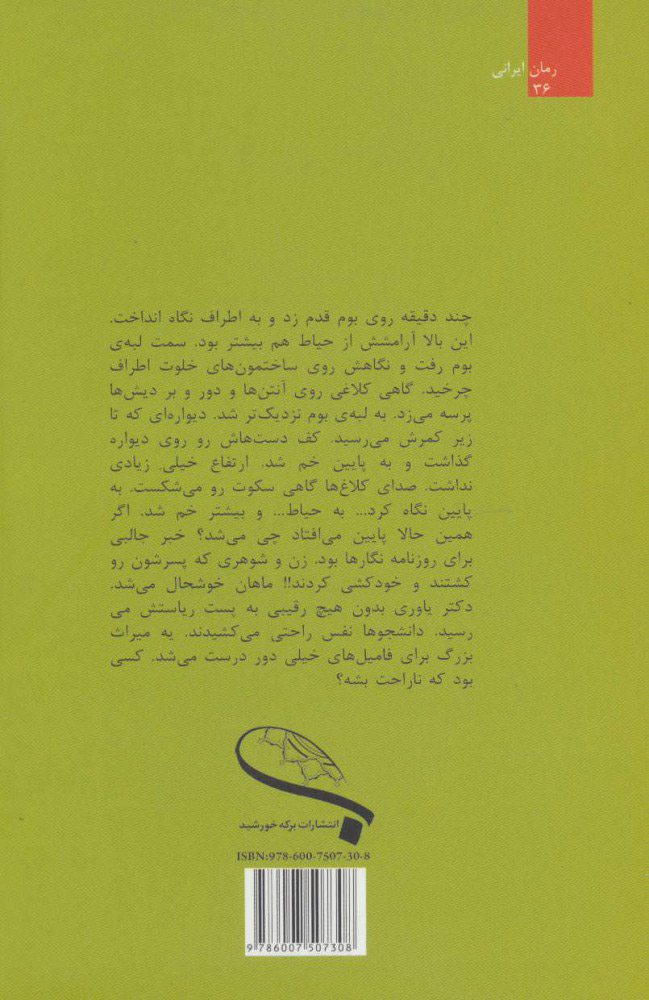 رمان ایرانی
۳۶
چند دقیقه روی بوم قدم زد و به اطراف نگاه انداخت.
این بالا آرامشش از حیاط هم بیشتر بود. سمت لبه‌ی
بوم رفت و نگاهش روی ساختمون‌های خلوت اطراف
چرخید. گاهی کلاغی روی آنتن‌ها و دور و بر دیش‌ها
پرسه می‌زد. به لبه‌ی بوم نزدیک‌تر شد. دیواره‌ای که تا
زیر کمرش می‌رسید. کف دست‌هاش رو روی دیواره
گذاشت و به پایین خم شد. ارتفاع خیلی زیادی
نداشت. صدای کلاغ‌ها گاهی سکوت رو می‌شکست. به
پایین نگاه کرد... به حیاط... و بیشتر خم شد. اگر
همین حالا پایین می‌افتاد چی می‌شد؟ خبر جالبی
برای روزنامه نگارها بود. زن و شوهری که پسرشون رو
کشتند و خودکشی کردند!! ماهان خوشحال می‌شد.
دکتر یاوری بدون هیچ رقیبی به پست ریاستش می
رسید. دانشجوها نفس راحتی می‌کشیدند. یه میراث
بزرگ برای فامیل‌های خیلی دور درست می‌شد. کسی
بود که ناراحت بشه؟
انتشارات برکه خورشید
ISBN:978-600-7507-30-8
9 786007 507308